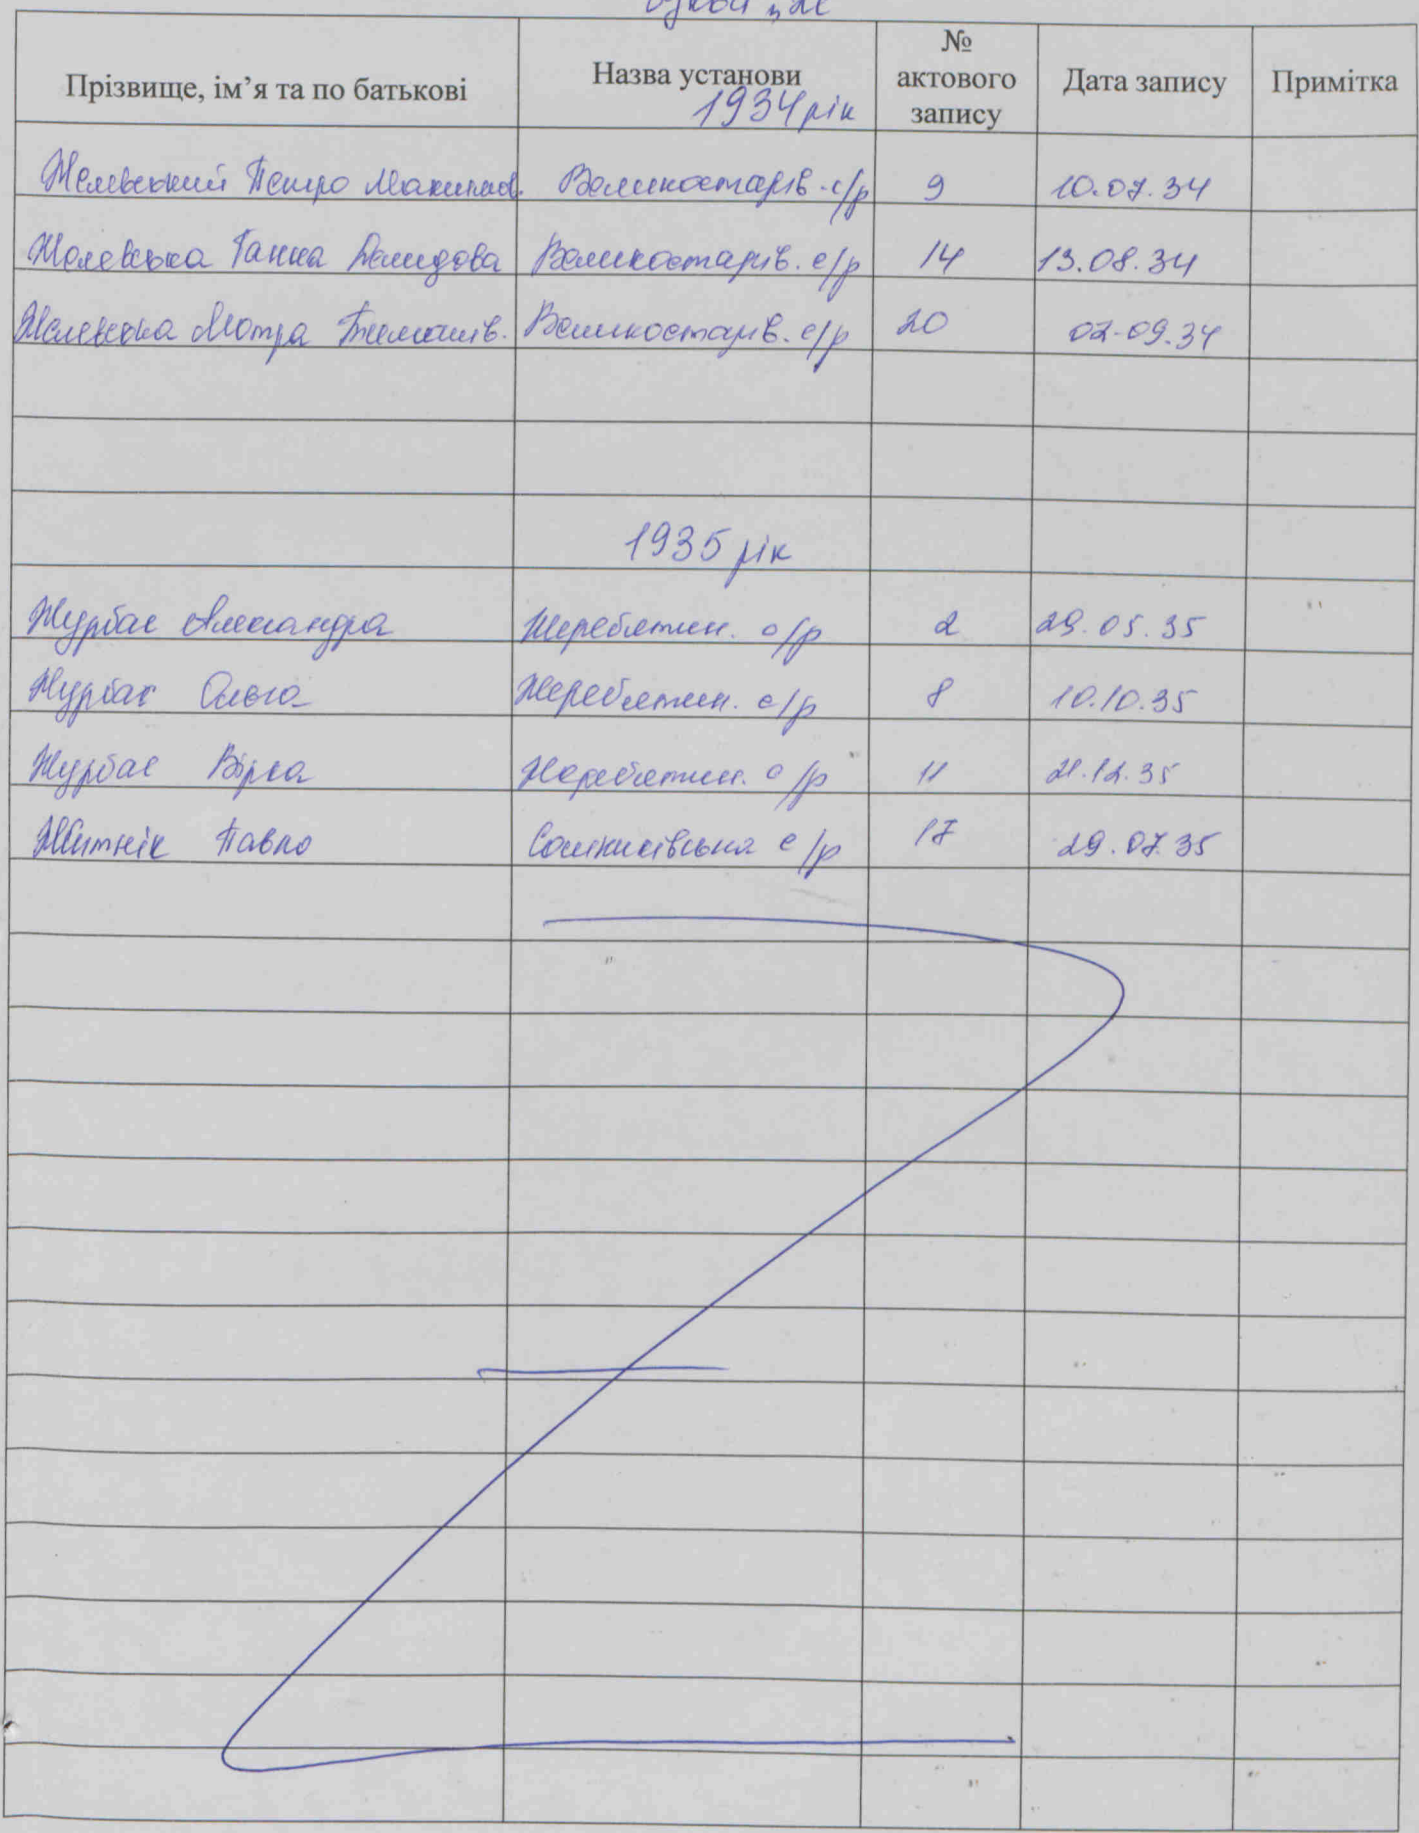 буква "Ж"
Прізвище, ім’я та по батькові Назва установи № актового запису Дата запису Примітка
1934 рік
Желевський Петро Великостарів. с/р 9 10.07.34
Желевська Ганна Демидова Великостарів. с/р 14 13.08.34
Желевська Мотра Тимошів. Великостарів. с/р 20 02.09.34
1935 рік
Журбас Александра Жеребятин. с/р 2 29.05.35
Журбас Ольга Жеребятин. с/р 8 10.10.35
Журбас Вірка Жеребятин. с/р 11 21.12.35
Житнік Павло Сошниківська с/р 17 29.07.35